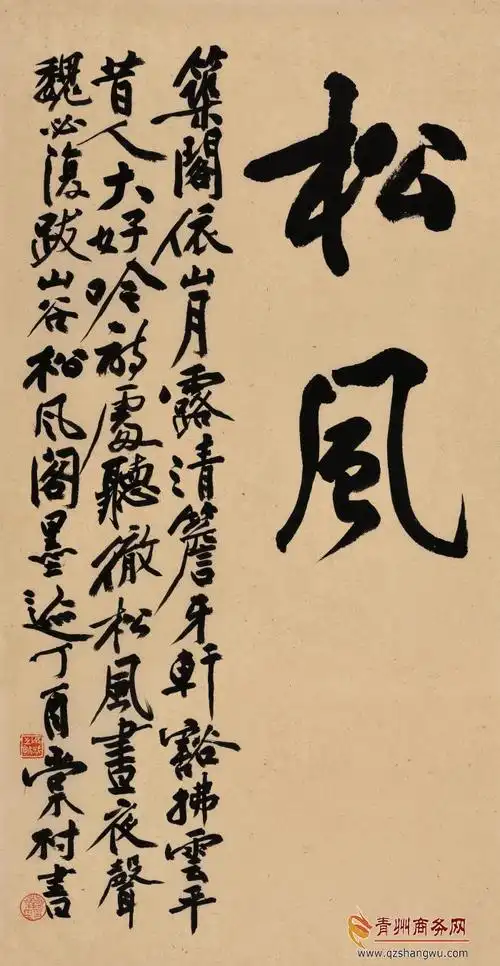 松風
築閣依山月露清簷牙軒豁拂雲平
昔人大好吟詩處聽徹松風晝夜聲
魏必復跋山谷松風閣墨迹丁酉棠村書
青州商务网
www.qzshangwu.com